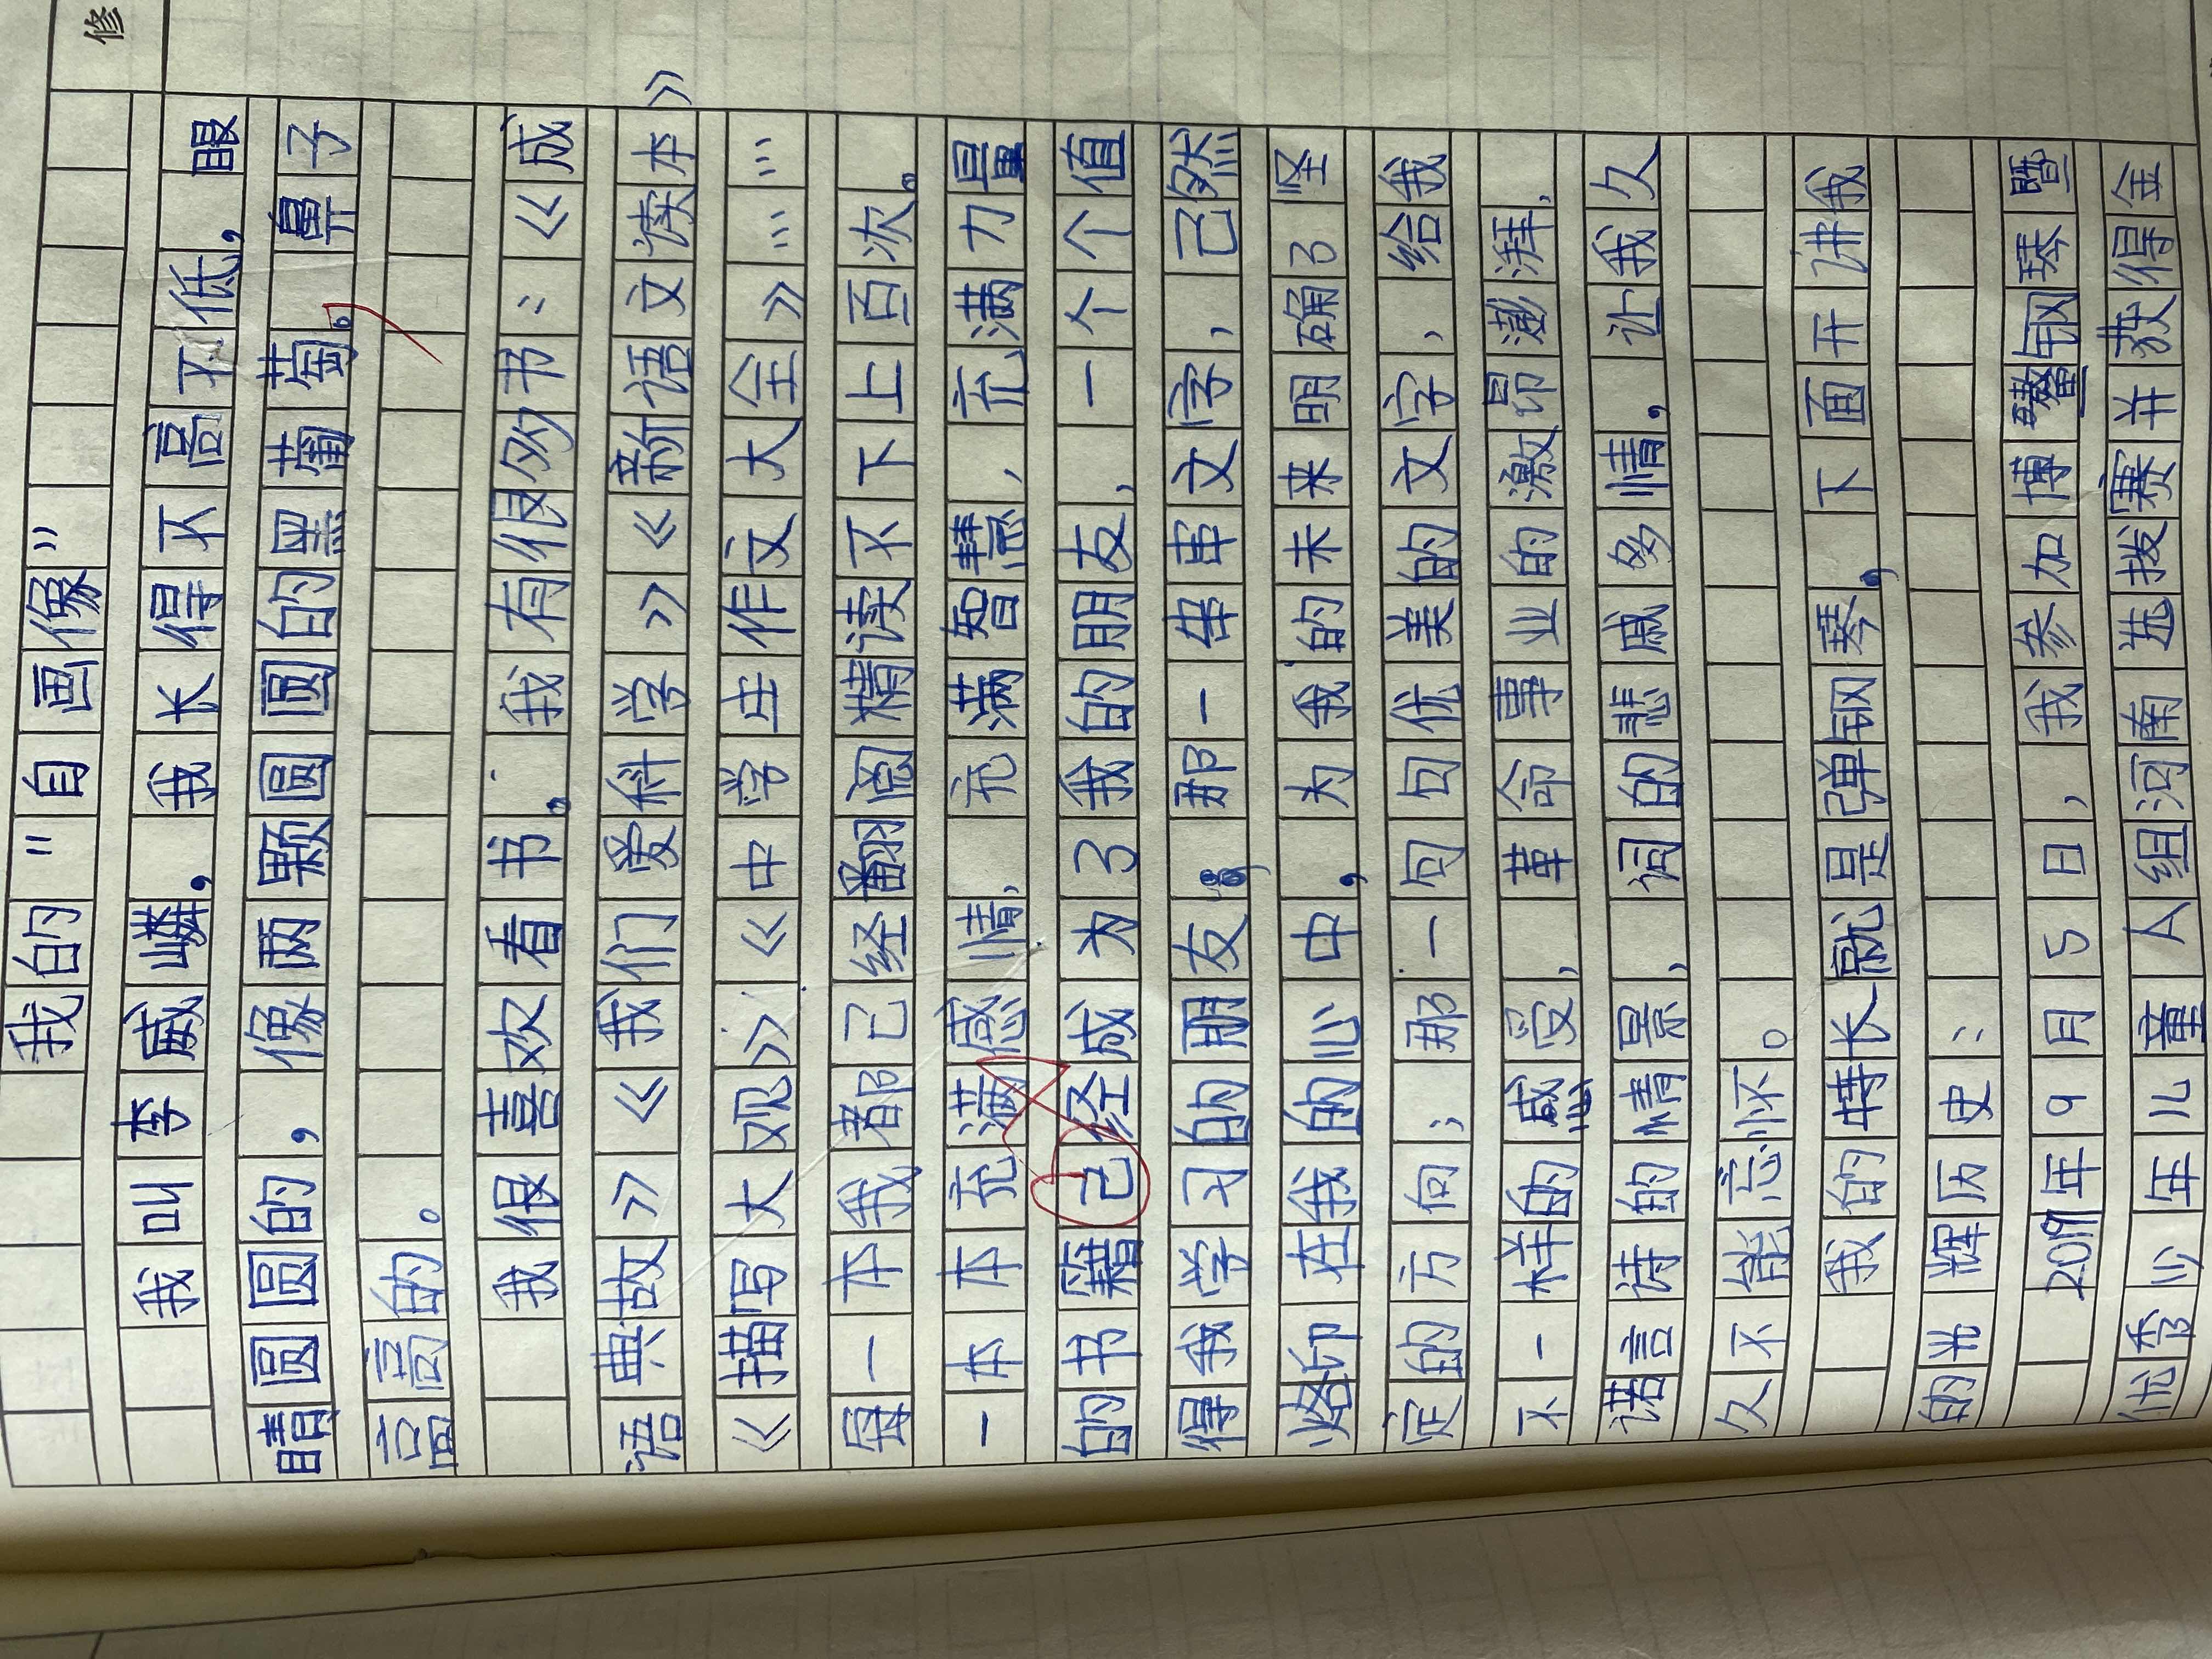 修
我的"自画像"
我叫李威嶙，我长得不高不低，眼
睛圆圆的，像两颗圆圆的黑葡萄。鼻子
高高的。
我很喜欢看书。我有很多书：《成
语典故》《我们爱科学》《新语文读本》
《描写大观》《中学生作文大全》……
每一本我都已经翻阅精读不下上百次。
一本本充满感情，充满智慧，充满力量
的书籍己经成为了我的朋友，一个个值
得我学习的朋友。那一串串文字，已然
烙印在我的心中，为我的未来明确了坚
定的方向；那一句句优美的文字，给我
不一样的感受，革命事业的激昂澎湃，
诺言诗的情景，词的悲戚多情，让我久
久不能忘怀。
我的特长就是弹钢琴，下面开讲我
的光辉历史：
2019年9月5日，我参加博鳌钢琴暨
优秀少年儿童人组河南选拔赛并获得金